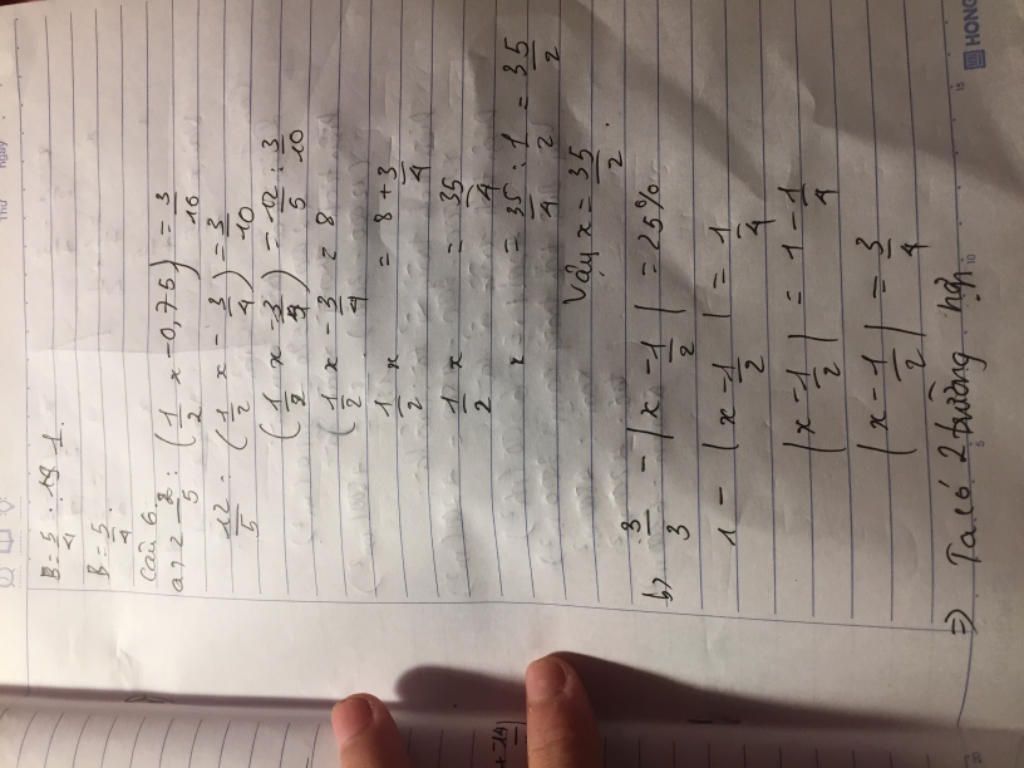 Thứ
Ngày
B = 5/4 . 19 1.
B = 5/4.
Câu 6
a, 2 2/5 : (1/2 x - 0,75) = 3/10
12/5 : (1/2 x - 3/4) = 3/10
(1/2 x - 3/4) = 12/5 : 3/10
(1/2 x - 3/4 = 8
1/2 x = 8 + 3/4
1/2 x = 35/4
x = 35/4 : 1/2 = 35/2
Vậy x = 35/2.
b, 3/3 - |x - 1/2| = 25%
1 - |x - 1/2| = 1/4
|x - 1/2| = 1 - 1/4
|x - 1/2| = 3/4
=> Ta có 2 trường hợp
5
10
15
20
HONG